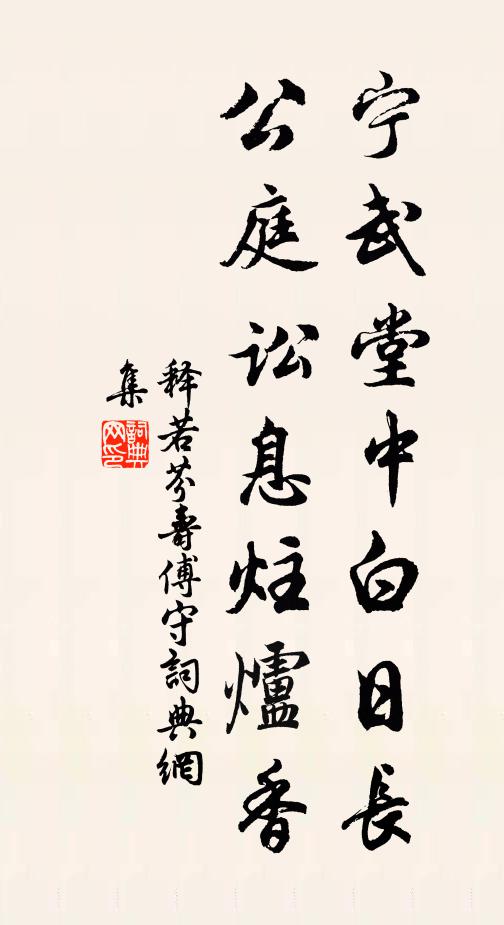 宁武堂中白日長
公庭讼息炷爐香
释若芬壽傅守詞典網
集
詞典网印